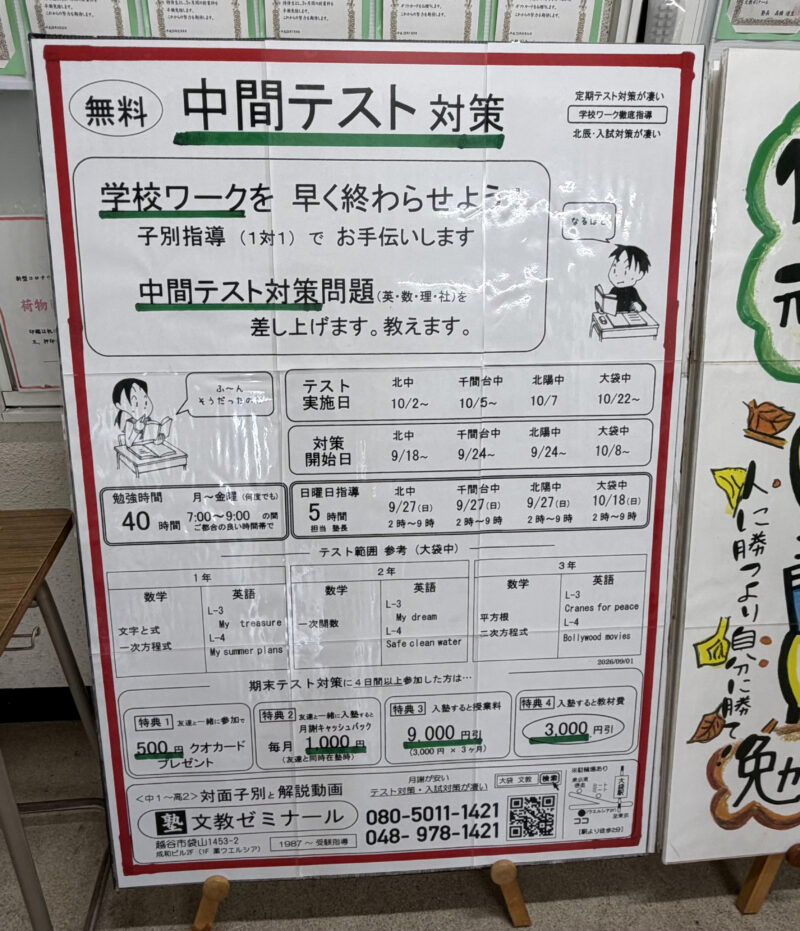 無料
中間テスト 対策
定期テスト対策が凄い
学校ワーク徹底指導
北辰・入試対策が凄い
学校ワークを 早く終わらせよう
子別指導 (1対1) で お手伝いします
なるほど
中間テスト対策問題(英・数・理・社)を
差し上げます。教えます。
ふ〜ん
そうだったのか
テスト実施日
北中 千間台中 北陽中 大袋中
10/2~ 10/5~ 10/7 10/22~
対策開始日
北中 千間台中 北陽中 大袋中
9/18~ 9/24~ 9/24~ 10/8~
勉強時間 月~金曜 (何度でも)
40時間 7:00~9:00 の間
ご都合の良い時間帯で
日曜日指導 北中 千間台中 北陽中 大袋中
5時間 9/27(日) 9/27(日) 9/27(日) 10/18(日)
担当 塾長 2時~9時 2時~9時 2時~9時 2時~9時
テスト範囲 参考 (大袋中)
1年
数学 英語
文字と式
一次方程式
L-3
My treasure
L-4
My summer plans
2年
数学 英語
一次関数
L-3
My dream
L-4
Safe clean water
3年
数学 英語
平方根
二次方程式
L-3
Cranes for peace
L-4
Bollywood movies
2026/09/01
期末テスト対策に4日間以上参加した方は…
特典1 友達と一緒に参加で
500円 クオカード
プレゼント
特典2 友達と一緒に入塾すると
月謝キャッシュバック
毎月 1,000円
(友達と同時在塾時)
特典3 入塾すると授業料
9,000円引
(3,000円 × 3ヶ月)
特典4 入塾すると教材費
3,000円引
<中1~高2> 対面子別と解説動画
塾 文教ゼミナール
越谷市袋山1453-2
成和ビル2F (1F 薬ウエルシア)
1987~ 受験指導
月謝が安い
テスト対策・入試対策が凄い
大袋 文教 検索
080-5011-1421
048-978-1421
※駐輪場あり
大袋駅
ココ
[駅より徒歩2分]
人に勝つより自分に勝て